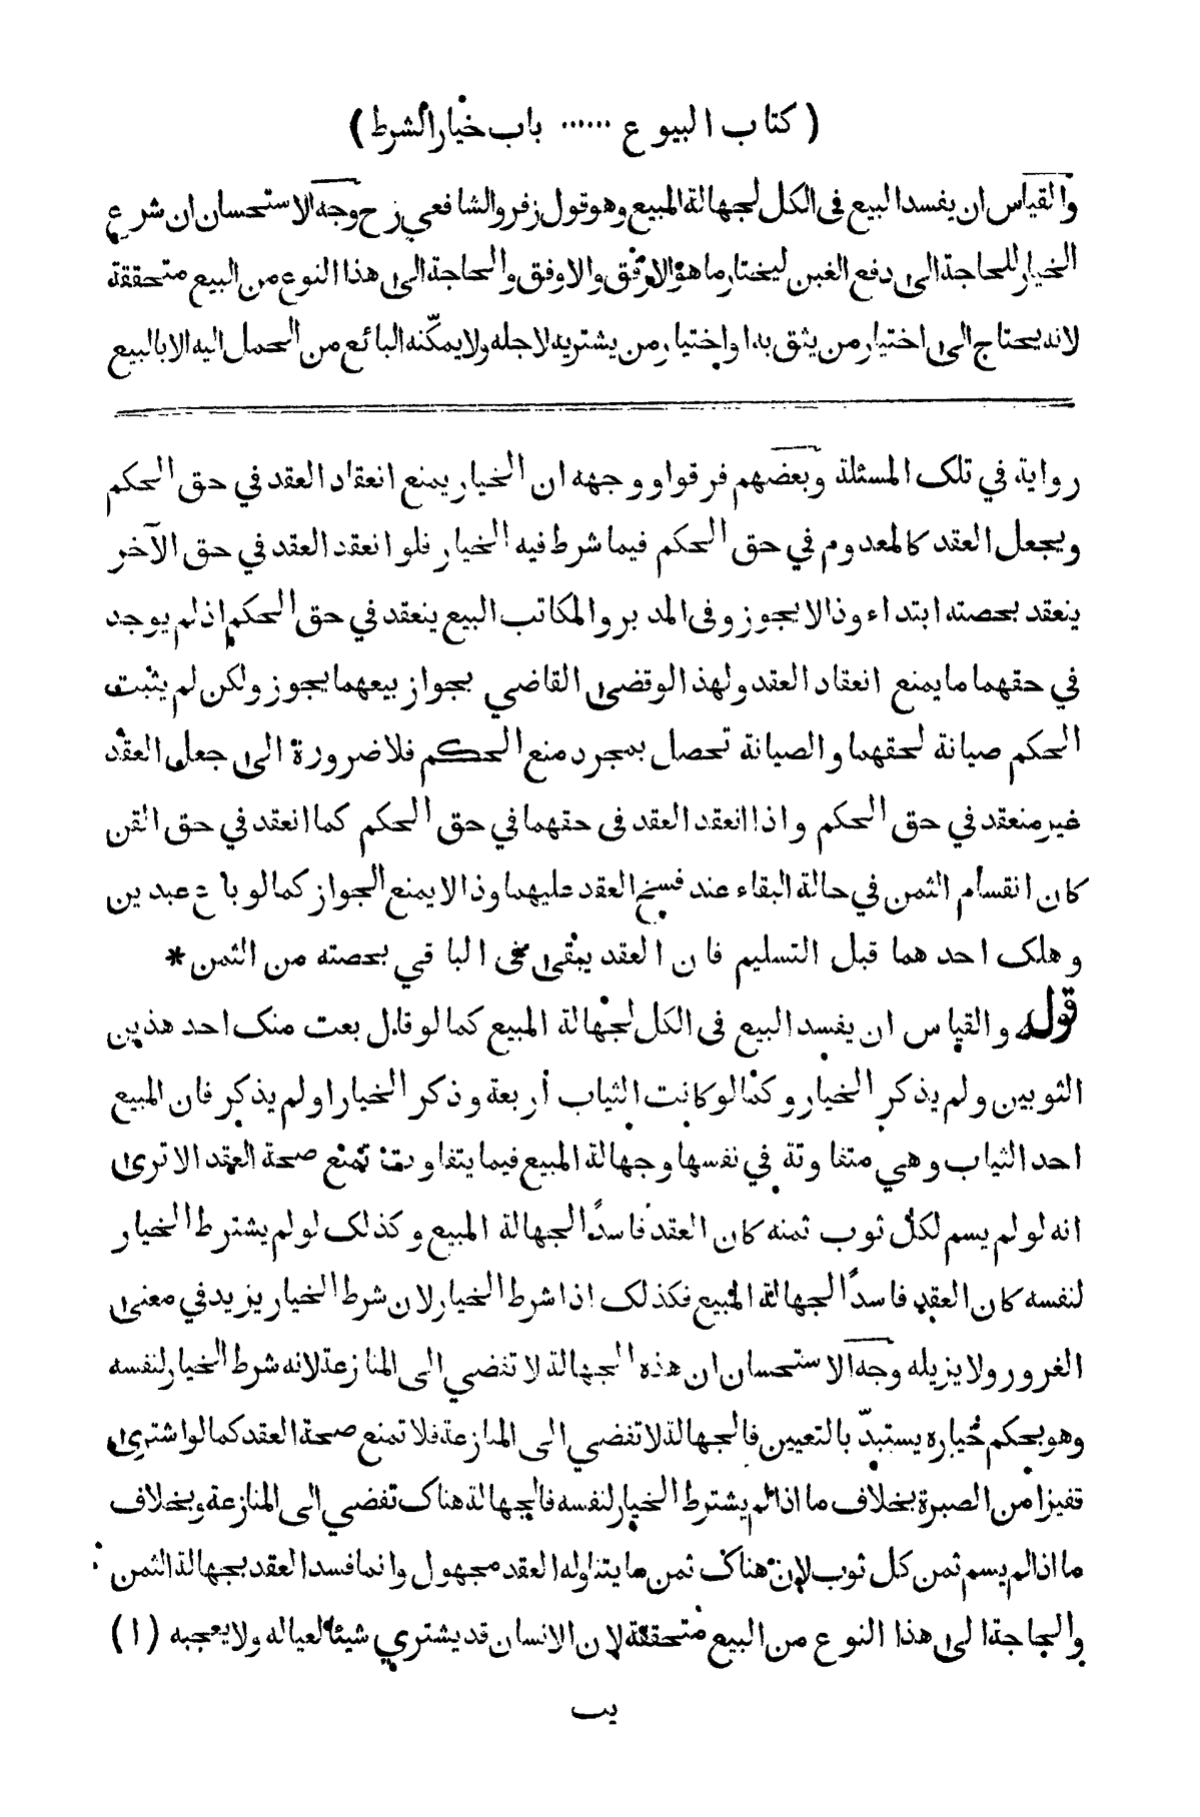 ( كتاب البيوع ...... باب خيار الشرط )
والقياس ان يفسد البيع فى الكل لجهالة المبيع وهو قول زفر والشافعي رح وجه الاستحسان ان شرع
الخيار للحاجة الى دفع الغبن ليختار ما هو الارفق والاوفق والحاجة الى هذا النوع من البيع متحققة
لانه يحتاج الى اختيار من يثق به او اختيار من يشتريه لاجله ولا يمكّنه البائع من الحمل اليه الا بالبيع
رواية في تلك المسئلة وبعضهم فرقوا ووجهه ان الخيار يمنع انعقاد العقد في حق الحكم
ويجعل العقد كالمعدوم في حق الحكم فيما شرط فيه الخيار فلو انعقد العقد في حق الآخر
ينعقد بحصته ابتداء وذا لا يجوز وفى المدبر والمكاتب البيع ينعقد في حق الحكم اذ لم يوجد
في حقهما ما يمنع انعقاد العقد ولهذا لو قضى القاضي بجواز بيعهما يجوز ولكن لم يثبت
الحكم صيانة لحقهما والصيانة تحصل بمجرد منع الحكم فلا ضرورة الى جعل العقد
غير منعقد في حق الحكم واذا انعقد العقد فى حقهما في حق الحكم كما انعقد في حق القن
كان انقسام الثمن في حالة البقاء عند فسخ العقد عليهما وذا لا يمنع الجواز كما لو باع عبدين
وهلك احدهما قبل التسليم فان العقد يبقى فى الباقي بحصته من الثمن *
قوله والقياس ان يفسد البيع فى الكل لجهالة المبيع كما لو قال بعت منك احد هذين
الثوبين ولم يذكر الخيار وكما لو كانت الثياب أربعة وذكر الخيار او لم يذكر فان المبيع
احد الثياب وهي متفاوتة في نفسها وجهالة المبيع فيما يتفاوت تمنع صحة العقد الا ترى
انه لو لم يسم لكل ثوب ثمنه كان العقد فاسداً لجهالة المبيع وكذلك لو لم يشترط الخيار
لنفسه كان العقد فاسداً لجهالة المبيع فكذلك اذا شرط الخيار لان شرط الخيار يزيد في معنى
الغرور ولا يزيله وجه الاستحسان ان هذه الجهالة لا تفضي الى المنازعة لانه شرط الخيار لنفسه
وهو بحكم خياره يستبدّ بالتعيين فالجهالة لا تفضي الى المنازعة فلا تمنع صحة العقد كما لو اشترى
قفيزا من الصبرة بخلاف ما اذا لم يشترط الخيار لنفسه فالجهالة هناك تفضي الى المنازعة وبخلاف
ما اذا لم يسم ثمن كل ثوب لان هناك ثمن ما يتناوله العقد مجهول وانما فسد العقد بجهالة الثمن
والحاجة الى هذا النوع من البيع متحققة لان الانسان قد يشتري شيئا لعياله ولا يعجبه (١)
يب